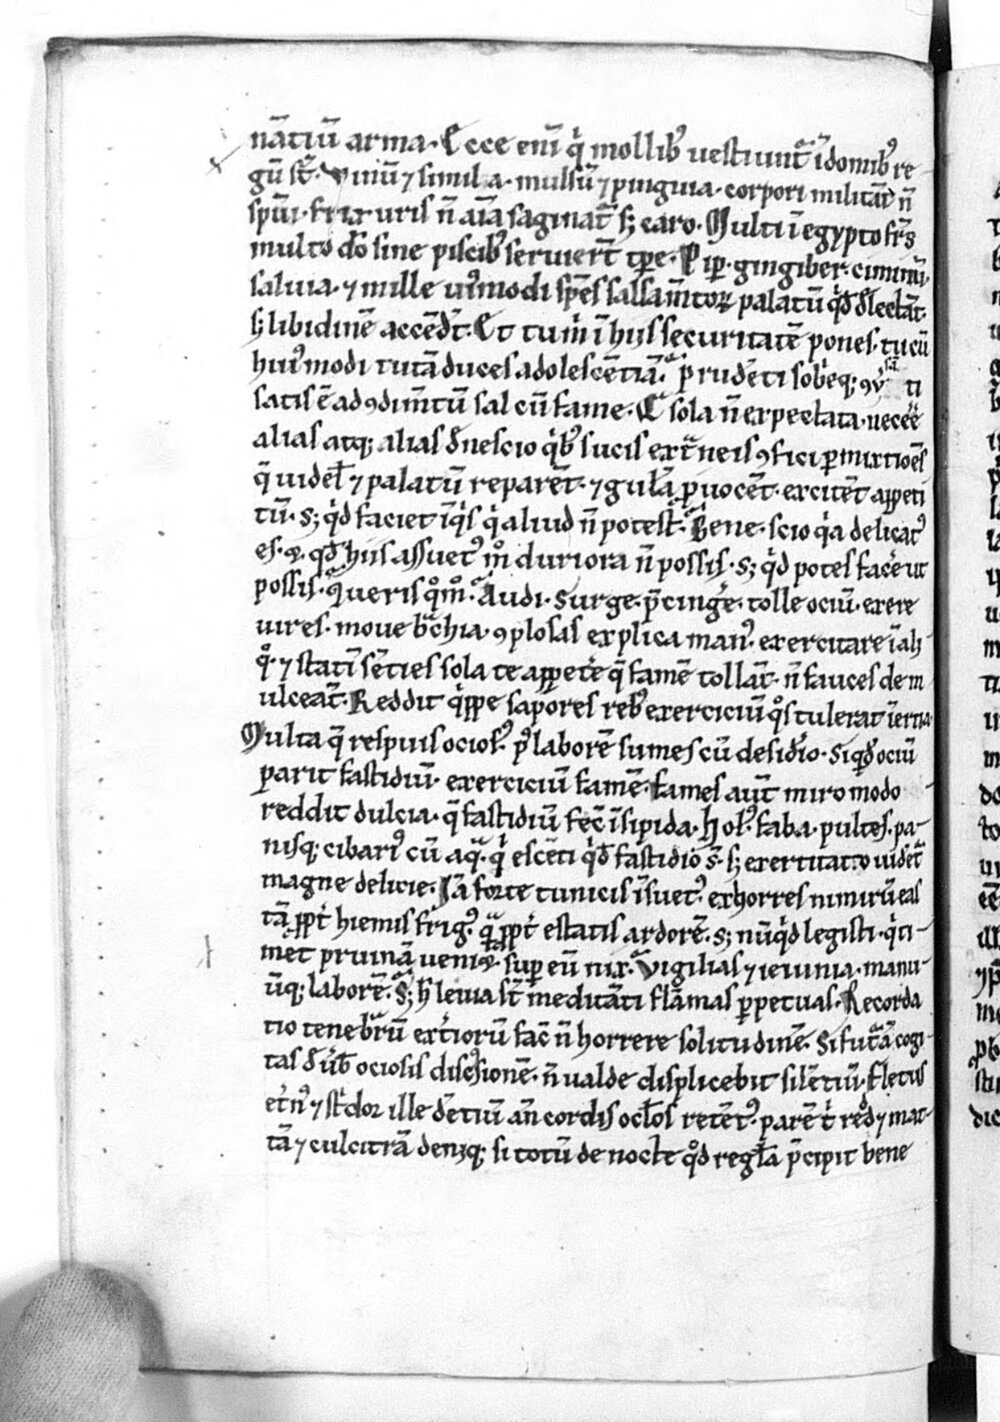 nātiū arma. Ecce eni̅ qͥ mollibꝰ uestiunt᷑ ī domibꝰ re
gū st̅. Vinū ⁊ simila. mulsū ⁊ pinguia. corpori militāt n̅
spu̅i. frixuris n̅ aīa saginat᷑ sꝫ caro. Multi ī egypto fr̅s
multo do̅ sine piscibꝰ seruiert̅ tp̅e. Pip̲. gingiber. ciminū.
saluia. ⁊ mille huiꝰmodi sp̅es salsam̅toꝝ palatū qͥd̅ delectāt.
sꝫ libidinē accēdūt. Et tu mͥ ī hijs securitatē pones. tu cū
huiꝰmodi tutā duces adolescētiā. prudēti sobͥeqꝫ ꝯuersāti
satis ē ad ꝯdim̅tū sal cū fame. Qͣ sola n̅ expectata. necēē
alias atqꝫ alias d̅ nescio qͥbꝰ sucis extᷓneis ꝯfici ꝑmixtiōes
q̄ uidel̅ ⁊ palatū reparēt. ⁊ gulā ꝓuocēt. excitēt appeti
tū. Sꝫ qͥd faciet īqͥs qͥ aliud n̅ potest. Bene. scio qͥa delicatꝰ
es. ⁊ qͥd̅ hijs assuetꝰ m̊ duriora n̅ possis. Sꝫ qͥd potes facͥe ut
possis. Queris qͦm̊. Audi. Surge. p̄cingͥe. tolle ociū. exere
uires. moue bᷓchia. ꝯplosas explica manꝰ. exercitare ī alͥ
qͦ. ⁊ statī sēties sola te appetͥe q̄ famē tollāt. n̅ fauces dem
ulceāt. Reddit qͥppe sapores rebꝰ exerciciū qͦs tulerat īertia.
Multa q̄ respuis ociosꝰ. pꝰ laborē sumes cū desidͥio. Siqͥd̅ ociū
parit fastidiū. exerciciū famē. fames aut̅ miro modo
reddit dulcia. q̄ fastidiū fec̅ īsipida. Holꝰ. faba. pultes. pa-
nisqꝫ cibariꝰ cū aqͣ. qͥescēti qͥd̅ fastidio s̅t. sꝫ exercitato uidēt᷑
magne delicie. Iā forte tunicis īsuetꝰ. exhorres nimirū eas
tā ꝓpt̅ hiemis frigꝰ. qͣ ꝓpt̅ estatis ardorē. Sꝫ nūqͥd legisti. qͥ ti-
mēt pruinā ueniet sup̲ eū nix. Vigilias ⁊ ieiunia. manu-
ūqꝫ laborē. Sꝫ h̅ leuia st̅ meditāti flāmas ꝑpetuas. Recorda
tio tenebrᷓū extͥiorū fac̅ n̅ horrere solitudinē. Si futᷓā cogi-
tas d̅ uͥb̅ ociosis discussionē. n̅ ualde displicebit silētiū. Fletus
et̅nꝰ ⁊ stͥdor ille dētiū an̅ cordis oclos retētꝰ. parē tͥ redd ⁊ mat-
tā ⁊ culcitrā deniqꝫ si totū de nocte qͦd regl̅a p̄cipit bene